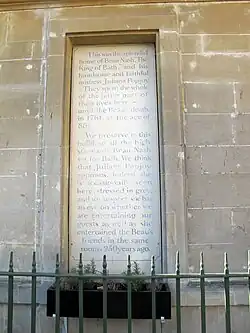 This was the splendid
home of Beau Nash, The
King of Bath, and his
handsome and faithful
mistress, Juliana Popjoy.
They spent the whole
of the latter part of
their lives here —
until the Beau's death
in 1761, at the age of
87.
We preserve in this
building all the high
standards Beau Nash
set for Bath. We think
that Juliana Popjoy
approves. Indeed she
is occasionally seen
here, dressed in grey,
and we suspect she has
an eye on whether we
are entertaining our
guests as well as she
entertained the Beau's
friends in the same
rooms 250 years ago.